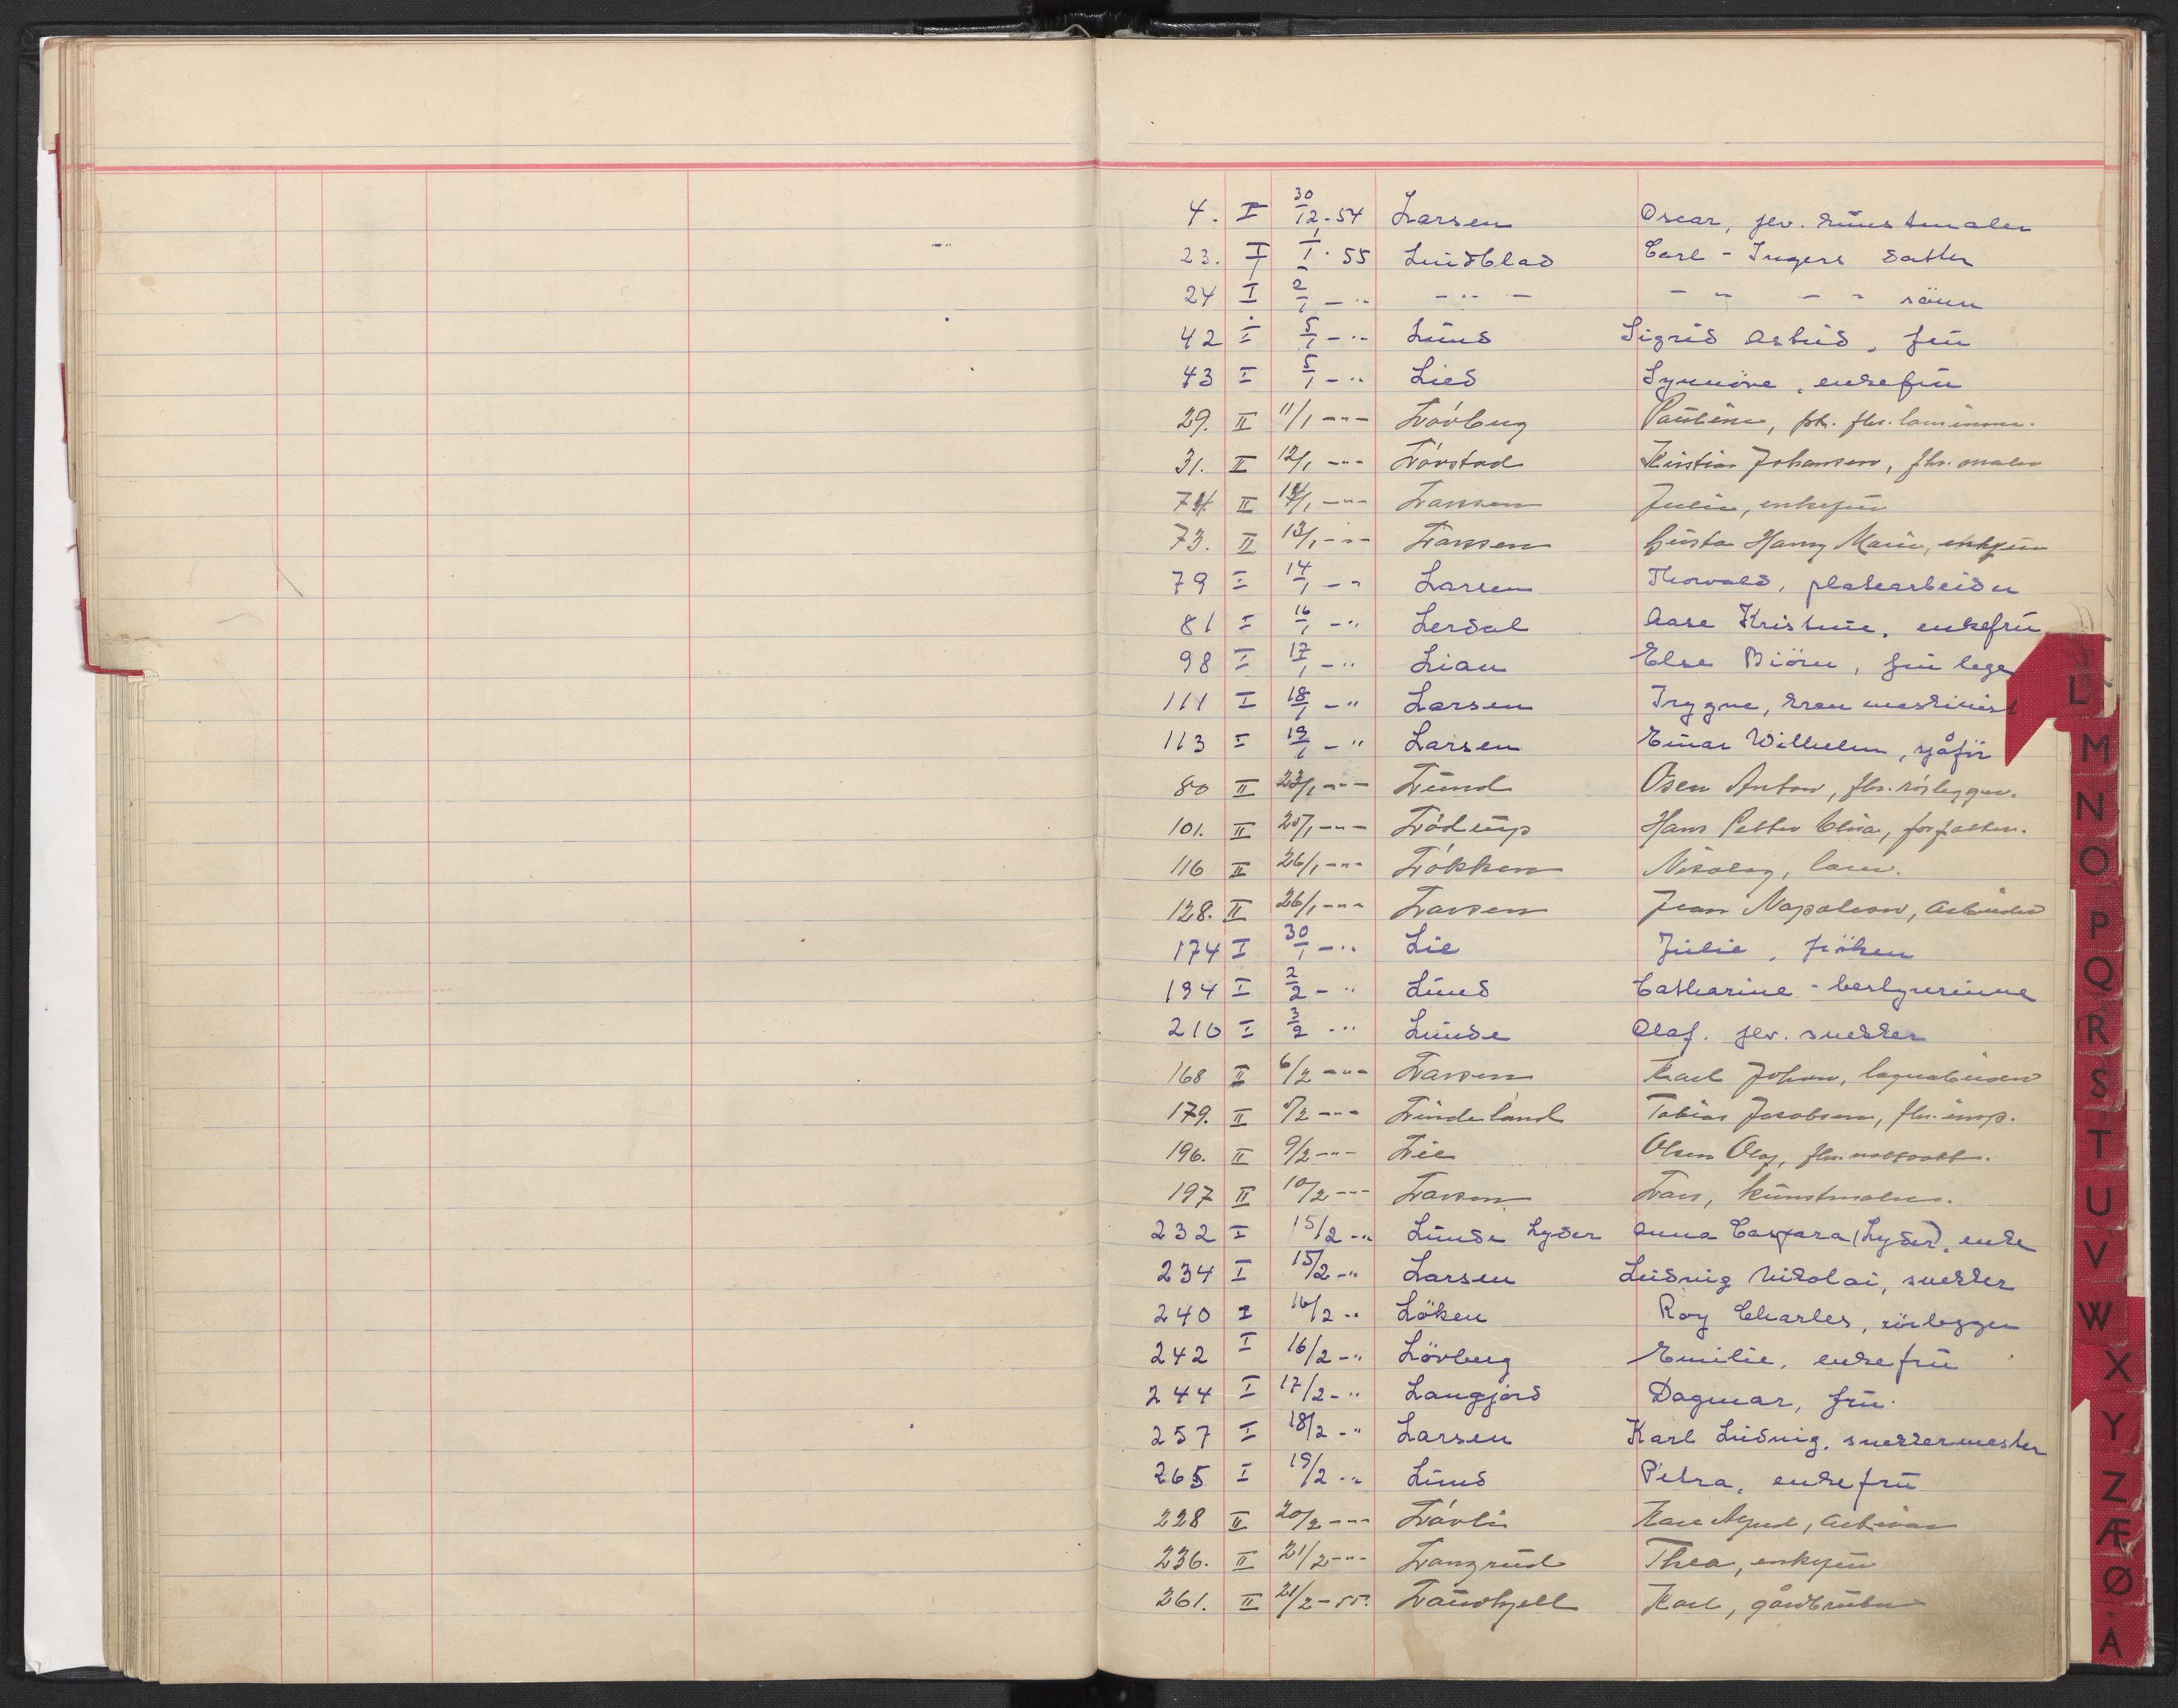 4. I 30/12-54 Larsen Oscar, fhv. kunstmaler
23. I 1/1-55 Lindblad Carl - Ingers datter
24 I 2/1 - " - " - - " - " sönn
42 I 5/1 - " Lund Sigrid Astrid, fru
43 I 5/1 - " Lied Synnöve, enkefru
29. II 11/1 - " - Lövberg Pauline, frk. fhv. lærerinne.
31. II 12/1 - " - Lövstad Kristian Johansen, fhv. maler
74 II 14/1 - " - Larssen Julie, enkefru
73. II 13/1 - " - Larssen Gusta Hansy Marie, enkefru
79 I 14/1 - " Larsen Thorvald, platearbeider
81 I 16/1 - " Lerdal Aase Kristine, enkefru
98 I 17/1 - " Lian Else Biörn, fru lege
111 I 18/1 - " Larsen Trygve, kranmaskinist
113 I 19/1 - " Larsen Einar Wilhelm, sjåför
80 II 23/1 - " - Lund Osen Anton, fhv. rörlegger.
101. II 25/1 - " - Lödrup Hans Petter, forfatter.
116 II 26/1 - " - Lökken Nikolay,
128. II 26/1 - " - Larsen Jean Napoleon, arbeider
174 I 30/1 - " Lie Julie, fröken
194 I 2/2 - " Lund Catharine - bestyrerinne
210 I 3/2 - " Lunde Olaf. fhv. snekker
168 II 6/2 - " - Larsen Karl Johan, lagerarbeider
179. II 8/2 - " - Lindeland Tobias Jacobsen, fhv. insp.
196. II 9/2 - " - Lie Olsen Olaf, fhv.
197 II 10/2 - " - Larsen Lars, kunstmaler.
232 I 15/2 - " Lunde Lyder Anna Caspara (Lyder). enke
234 I 15/2 - " Larsen Ludvig Nikolai, snekker
240 I 16/2 - " Löken Roy Charles, rörlegger
242 I 16/2 - " Lövberg Emilie, enkefru
244 I 17/2 - " Langjord Dagmar, fru.
257 I 18/2 - " Larsen Karl Ludvig. snekkermester
265 I 19/2 - " Lund Petra, enkefru
228 II 20/2 - " - Lövli
236. II 21/2 - " - Langrud Thea, enkefru
261. II 21/2 - 55. Karl, gårdbruker
L
M
N
O
P
Q
R
S
T
U
V
W
X
Y
Z
Æ
Ø
Å